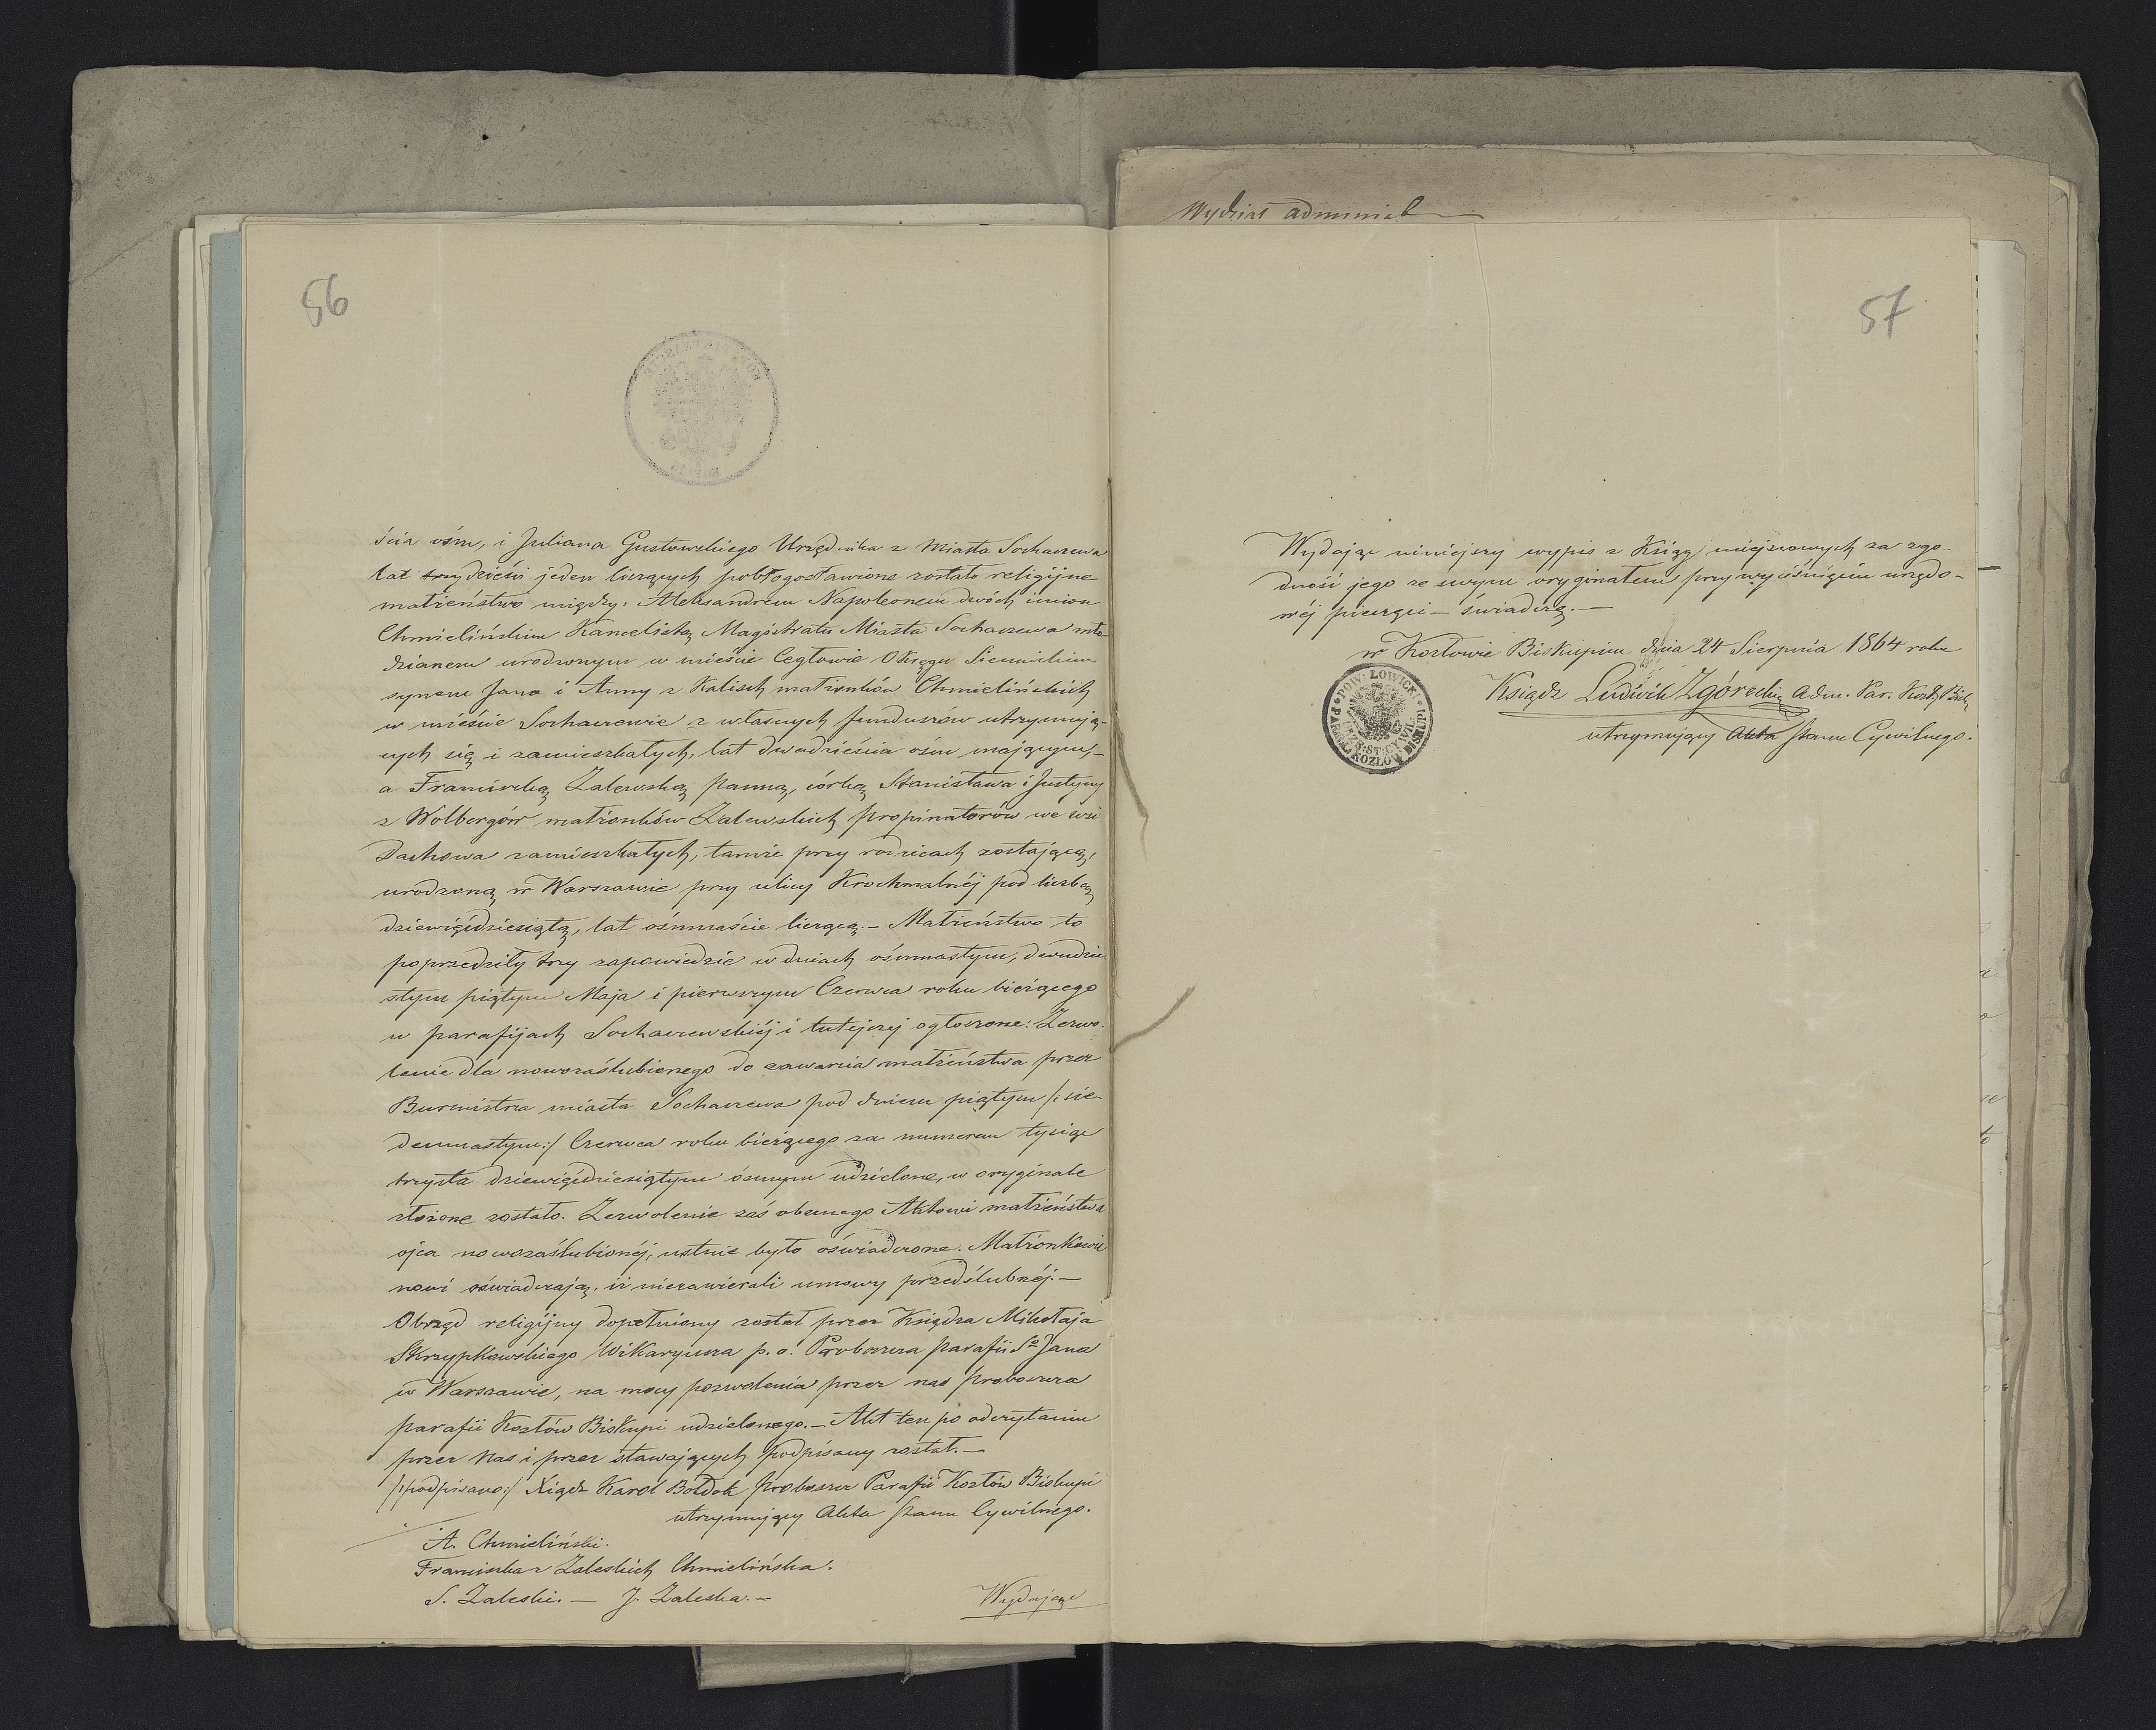 56
ścia ośm, i Juliana Gustowskiego Urzędnika z Miasta Sochaczewa
lat trzydzieści jeden liczących pobłogosławione zostało religijne
małżeństwo między: Aleksandrem Napoleonem dwóch imion
Chmielińskim Kancelistą Magistratu Miasta Sochaczewa mło-
dzianem urodzonym w mieście Cegłowie Okręgu Siennickim
synem Jana i Anny z Kalisch małżonków Chmielińskich
w mieście Sochaczewie z własnych funduszów utrzymują-
cych się i zamieszkałych, lat dwadzieścia ośm mającym,—
a Franciszką Zalewską panną, córką Stanisława i Justyny
z Wolbergów małżonków Zalewskich propinatorów we wsi
Dachowa zamieszkałych, tamże przy rodzicach zostającą,
urodzoną w Warszawie przy ulicy Krochmalnéj pod liczbą
dziewięćdziesiątą, lat ośmnaście liczącą.— Małżeństwo to
poprzedziły trzy zapowiedzie w dniach ośmnastym, dwudzie-
stym piątym Maja i pierwszym Czerwca roku bieżącego
w parafijach Sochaczewskiéj i tutejszej ogłoszone: Zezwo-
lenie dla nowozaślubionego do zawarcia małżeństwa przez
Burmistrza miasta Sochaczewa pod dniem piątym /: sie-
demnastym:/ Czerwca roku bieżącego za numerem tysiąc
trzysta dziewięćdziesiątym ósmym udzielone, w oryginale
złożone zostało. Zezwolenie zaś obecnego Aktowi małżeństwa
ojca nowozaślubionéj, ustnie było oświadczone. Małżonkowie
nowi oświadczają, iż niezawierali umowy przedślubnéj.—
Obrząd religijny dopełniony został przez Księdza Mikołaja
Skrzypkowskiego Wikaryusza p. o. Proboszcza parafii Sgo Jana
w Warszawie, na mocy pozwolenia przez nas proboszcza
parafii Kozłów Biskupi udzielonego.— Akt ten po odczytaniu
przez Nas i przez stawających podpisany został.—
/:podpisano:/ Xiądz Karól Bołdok proboszcz Parafii Kozłów Biskupi
utrzymujący Akta stanu Cywilnego.
A. Chmieliński.
Franciszka z Zaleskich Chmielińska.
S. Zaleski.— J. Zaleska.—
Wydając
Wydział administ
57
Wydając niniejszy wypis z Ksiąg miejscowych za zgo-
dność jego ze swym oryginałem przy wyciśnięciu urzędo-
wéj pieczęci — świadczę.—
w Kozłowie Biskupim dnia 24 Sierpnia 1864 roku
Ksiądz Ludwik Zgórecki Adm. Par. Kozł. Bisk.
utrzymujący Akta stanu Cywilnego.
POW: ŁOWICKI
URZ: ST: CYWIL:
PARAF: KOZŁOW BISKUPI